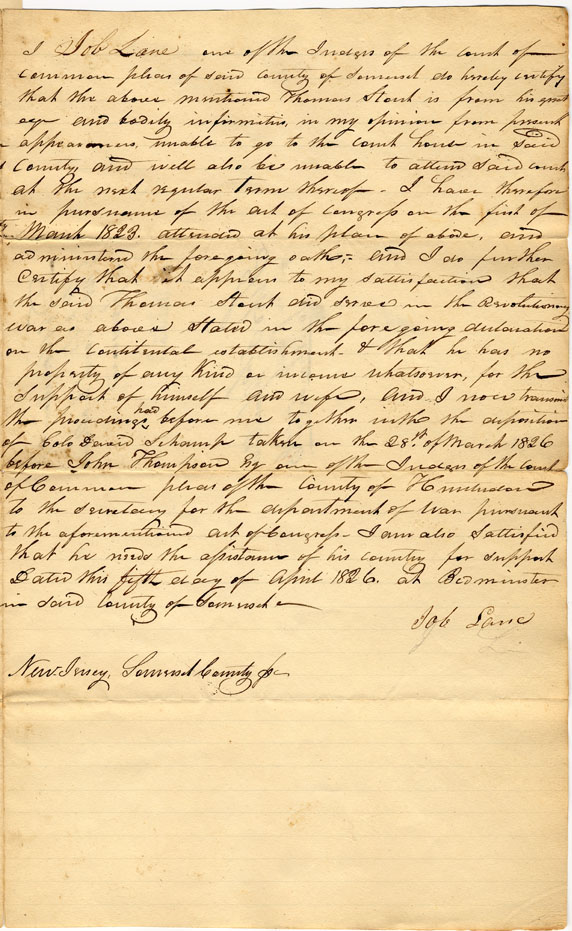 I Job Lane one of the Judges of the court of
common pleas of said county of Somerset do hereby certify
that the above mentioned Thomas Stout is from his great
age and bodily infirmities, in my opinion from present
appearances, unable to go to the court house in said
County, and will also be unable to attend said court
at the next regular term thereof - I have therefore
in pursuance of the act of congress on the first of
March 1823. attended at his place of abode, and
administered the foregoing oath;- and I do further
Certify that it appears to my sattisfaction that
the said Thomas Stout did serve in the Revolutionary
war as above stated in the foregoing declaration
on the contitental establishment - & that he has no
property of any kind or income whatsoever, for the
support of himself and wife, and I now transmit
the proceedings had before me together with the deposition
of Colo David Schamp taken on the 28th of March 1826
before John Thompson Esq one of the Judges of the court
of Common pleas of the County of Hunterdon
to the secretary for the department of war pursuant
to the aforementioned act of Congress - I am also sattisfied
that he needs the assistance of his country for support
Dated this fifth day of April 1826. at Bedminster
in said County of Somerset
Job Lane
New Jersey, Somerset County ss